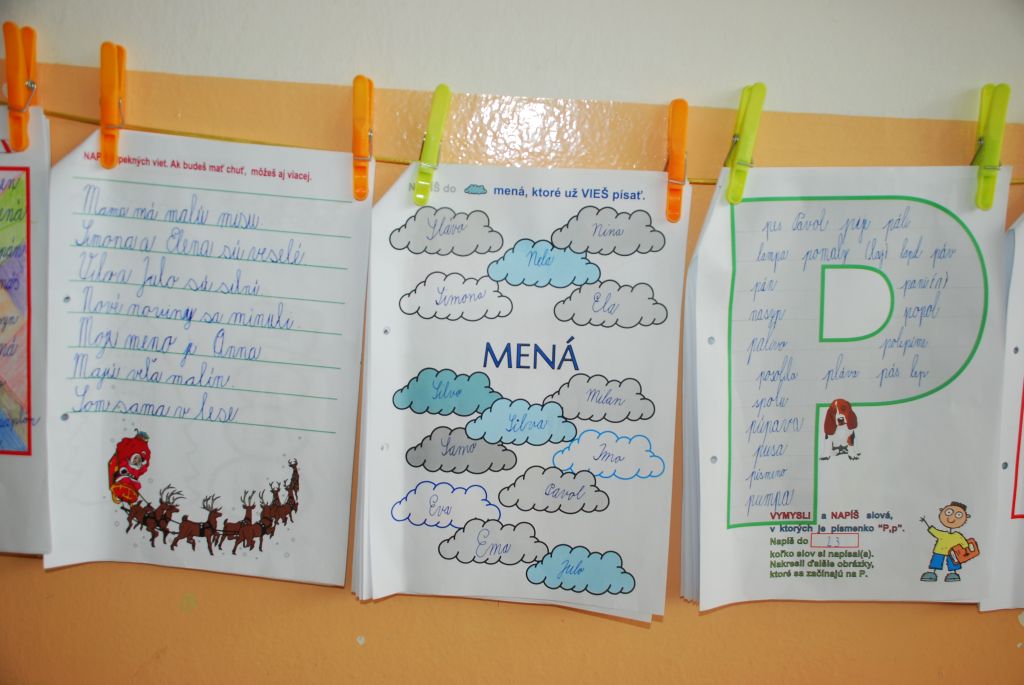 pekných viet. Ak budeš mať chuť, môžeš aj viacej.
Mama má malú misu.
Simona a Elena sú veselé
Vilo a Julo sú silní.
Nové noviny sa minuli.
Moje meno je Anna
Majú veľa malín.
Som sama v lese
NAPÍŠ do mená, ktoré už VIEŠ písať.
Slávo Nina
Nela
Simona Ela
MENÁ
Silvo Milan
Silva
Samo Ima
Eva Pavol
Ema
Julo
pes Pavol pep páli
lampa pomaly lepí páv
pán
naspy popol
paliva polepíme
posolila pláva pás lep
spolu
púpava
pusa
písmeno
pumpa
VYMYSLI a NAPÍŠ slová,
v ktorých je písmenko "P,p".
Napíš do 23
koľko slov si napísal(a).
Nakresli ďalšie obrázky,
ktoré sa začínajú na P.